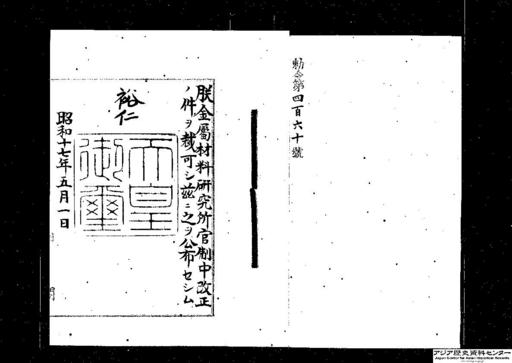 勅令第四百六十號
朕金屬材料研究所官制中改正
ノ件ヲ裁可シ茲ニ之ヲ公布セシム
裕仁
天皇
御璽
昭和十七年五月一日
アジア歴史資料センター
Japan Center for Asian Historical Records